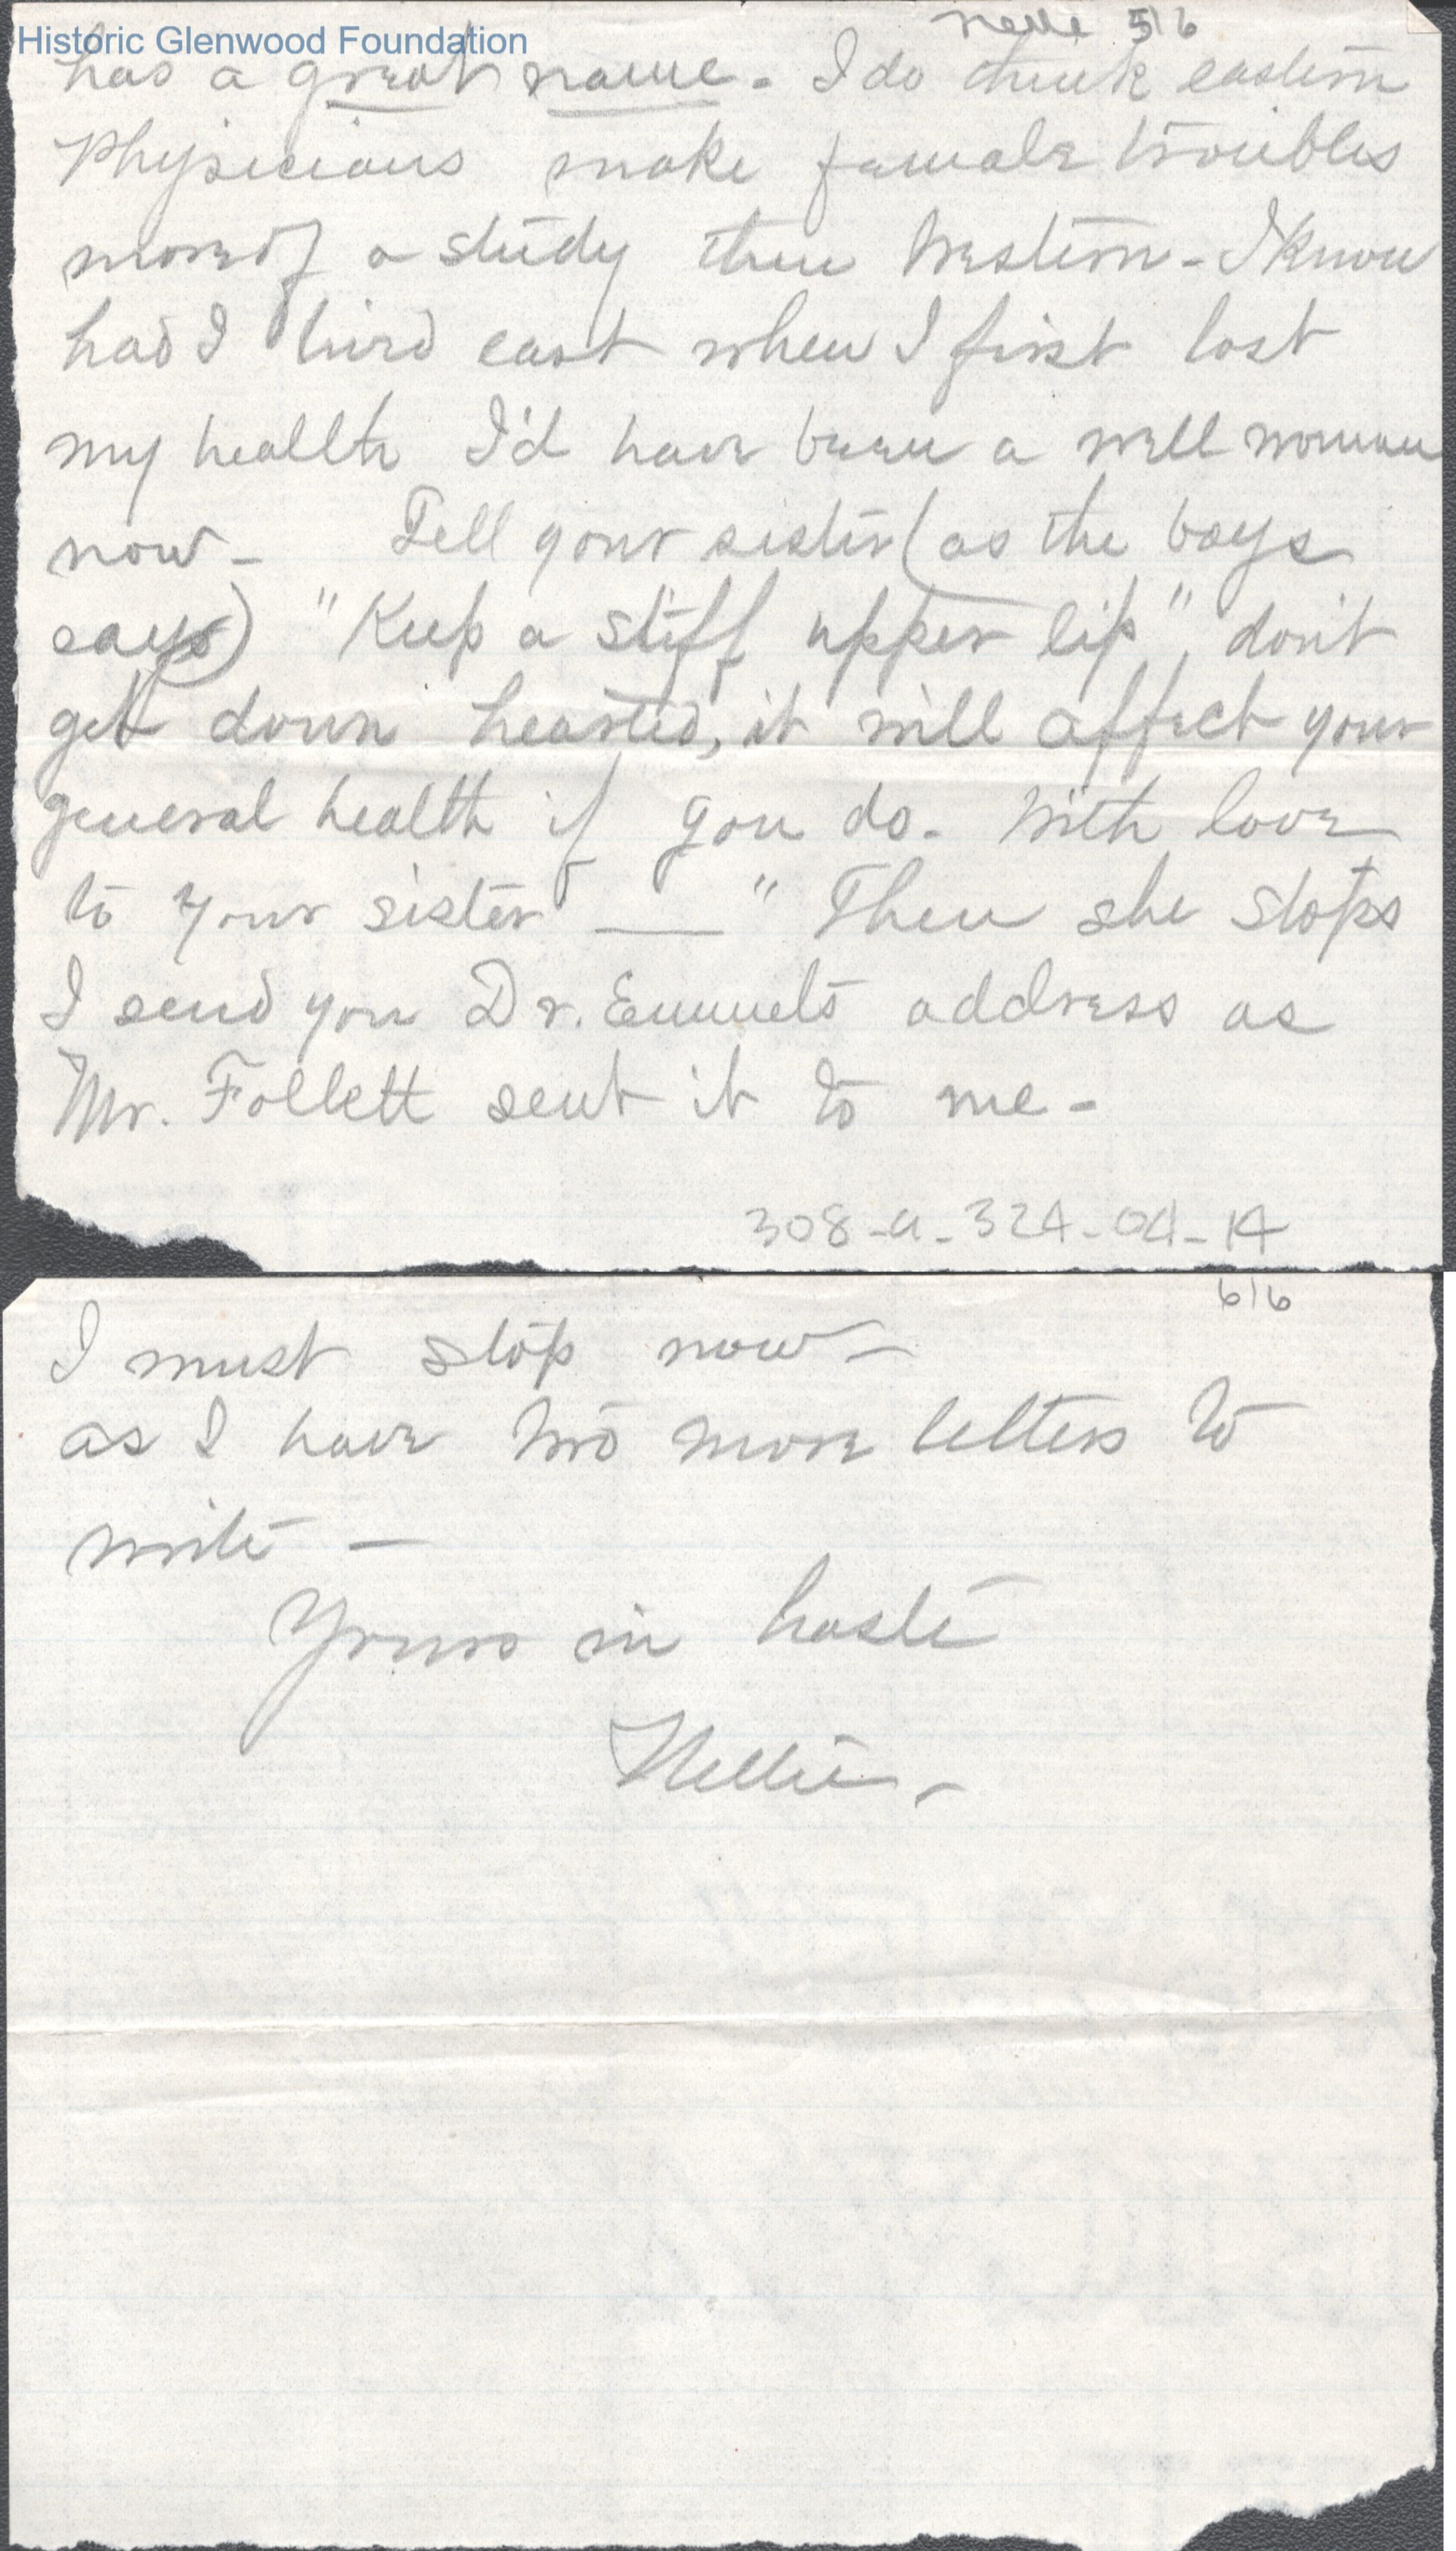 Historic Glenwood Foundation
Nelle 5/6
has a great name - I do think eastern
Physicians make female troubles
more of a study then Western - I know
had I lived east when I first lost
my health I'd have been a well woman
now - Tell your sister (as the boys
says) "Keep a stiff upper lip", don't
get down hearted, it will affect your
general health if you do. With love
to your sister ___" Then she stops
I send you Dr. Emmets address as
Mr. Follett sent it to me -
308-a-324-04-14
6/6
I must stop now -
as I have two more letters to
write -
Yours in haste
Nellie -